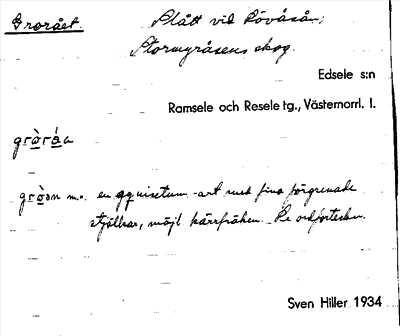 Grorået.
Slått vid Rövåsån;
Stormyråsens skog.
Edsele s:n
Ramsele och Resele tg., Västernorrl. l.
gròráa
gròən m. en equisetum-art med fina förgrenade
stjälkar, möjl. kärrfräken. Se ordförteckn.
Sven Hiller 1934